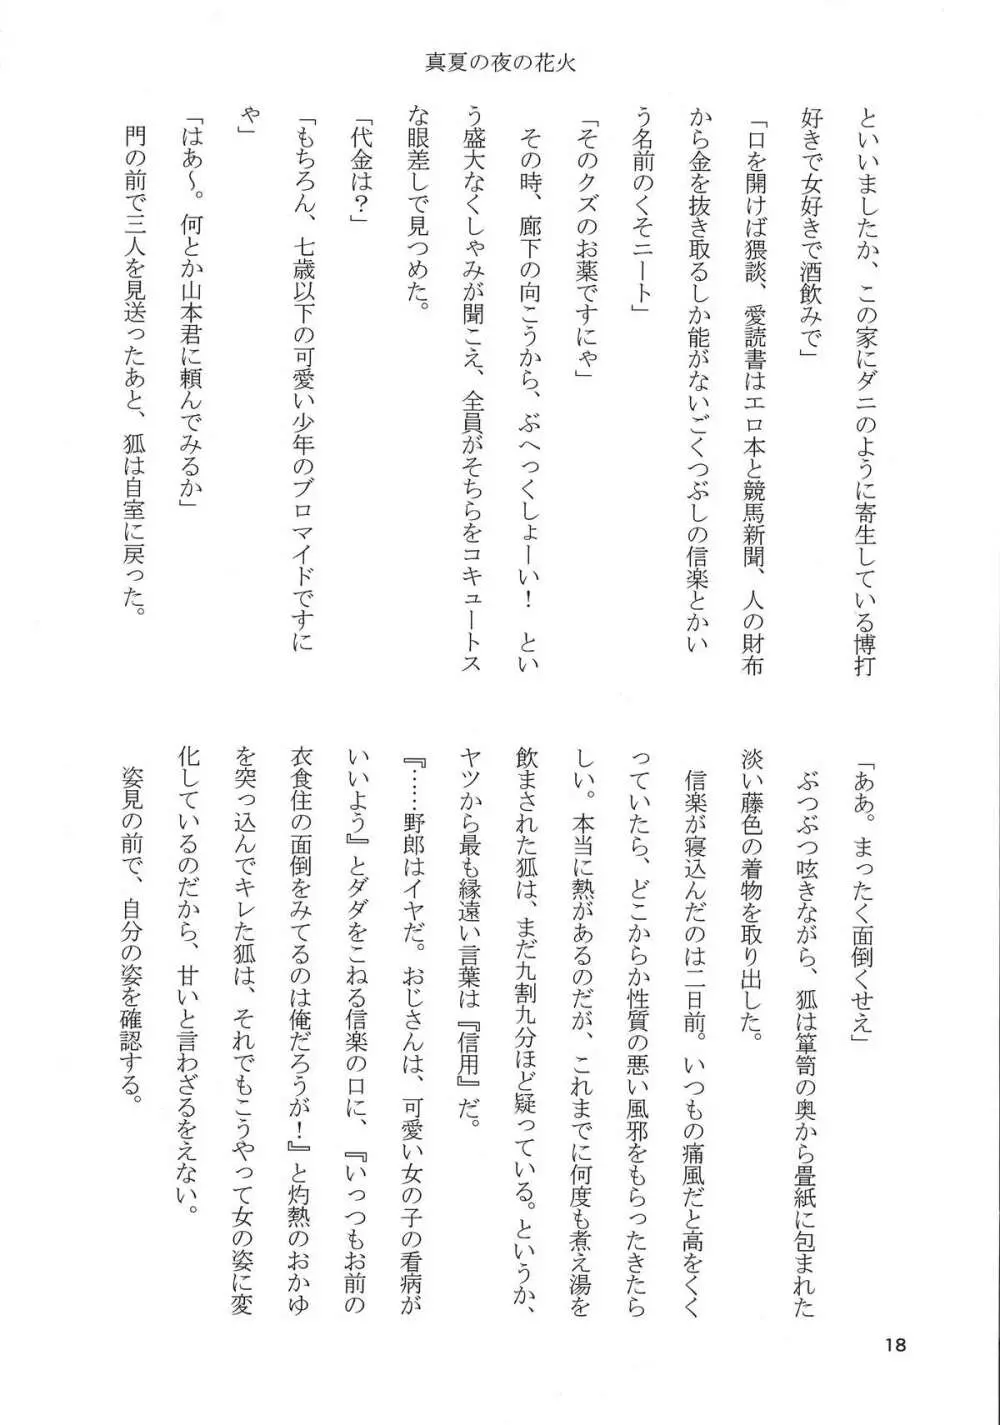 真夏の夜の花火
といいましたか、この家にダニのように寄生している博打
好きで女好きで酒飲みで」
「口を開けば猥談、愛読書はエロ本と競馬新聞、人の財布
から金を抜き取るしか能がないごくつぶしの信楽とかい
う名前のくそニート」
「そのクズのお薬ですにゃ」
その時、廊下の向こうから、ぶへっくしょーい！　とい
う盛大なくしゃみが聞こえ、全員がそちらをコキュートス
な眼差しで見つめた。
「代金は？」
「もちろん、七歳以下の可愛い少年のブロマイドですに
ゃ」
「はあ〜。何とか山本君に頼んでみるか」
門の前で三人を見送ったあと、狐は自室に戻った。
「ああ。まったく面倒くせえ」
ぶつぶつ呟きながら、狐は箪笥の奥から畳紙に包まれた
淡い藤色の着物を取り出した。
信楽が寝込んだのは二日前。いつもの痛風だと高をくく
っていたら、どこからか性質の悪い風邪をもらったきたら
しい。本当に熱があるのだが、これまでに何度も煮え湯を
飲まされた狐は、まだ九割九分ほど疑っている。というか、
ヤツから最も縁遠い言葉は『信用』だ。
『……野郎はイヤだ。おじさんは、可愛い女の子の看病が
いいよう』とダダをこねる信楽の口に、『いっつもお前の
衣食住の面倒をみてるのは俺だろうが！』と灼熱のおかゆ
を突っ込んでキレた狐は、それでもこうやって女の姿に変
化しているのだから、甘いと言わざるをえない。
姿見の前で、自分の姿を確認する。
18